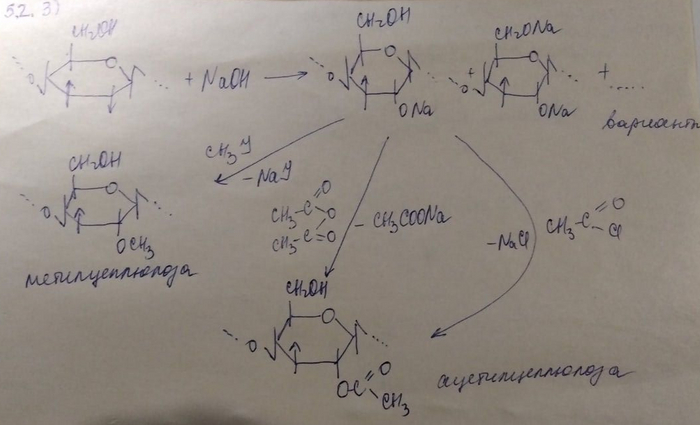 5.2. 3)
CH₂OH
O
O
+ NaOH
CH₂OH
O
O
ONa
+
CH₂ONa
O
O
ONa
+ .....
варианты
CH₃J
- NaJ
CH₂OH
O
O
OCH₃
метилцеллюлоза
CH₃-C=O
O
CH₃-C=O
- CH₃COONa
- NaCl
CH₃-C=O
Cl
CH₂OH
O
O
OC=O
CH₃
ацетилцеллюлоза